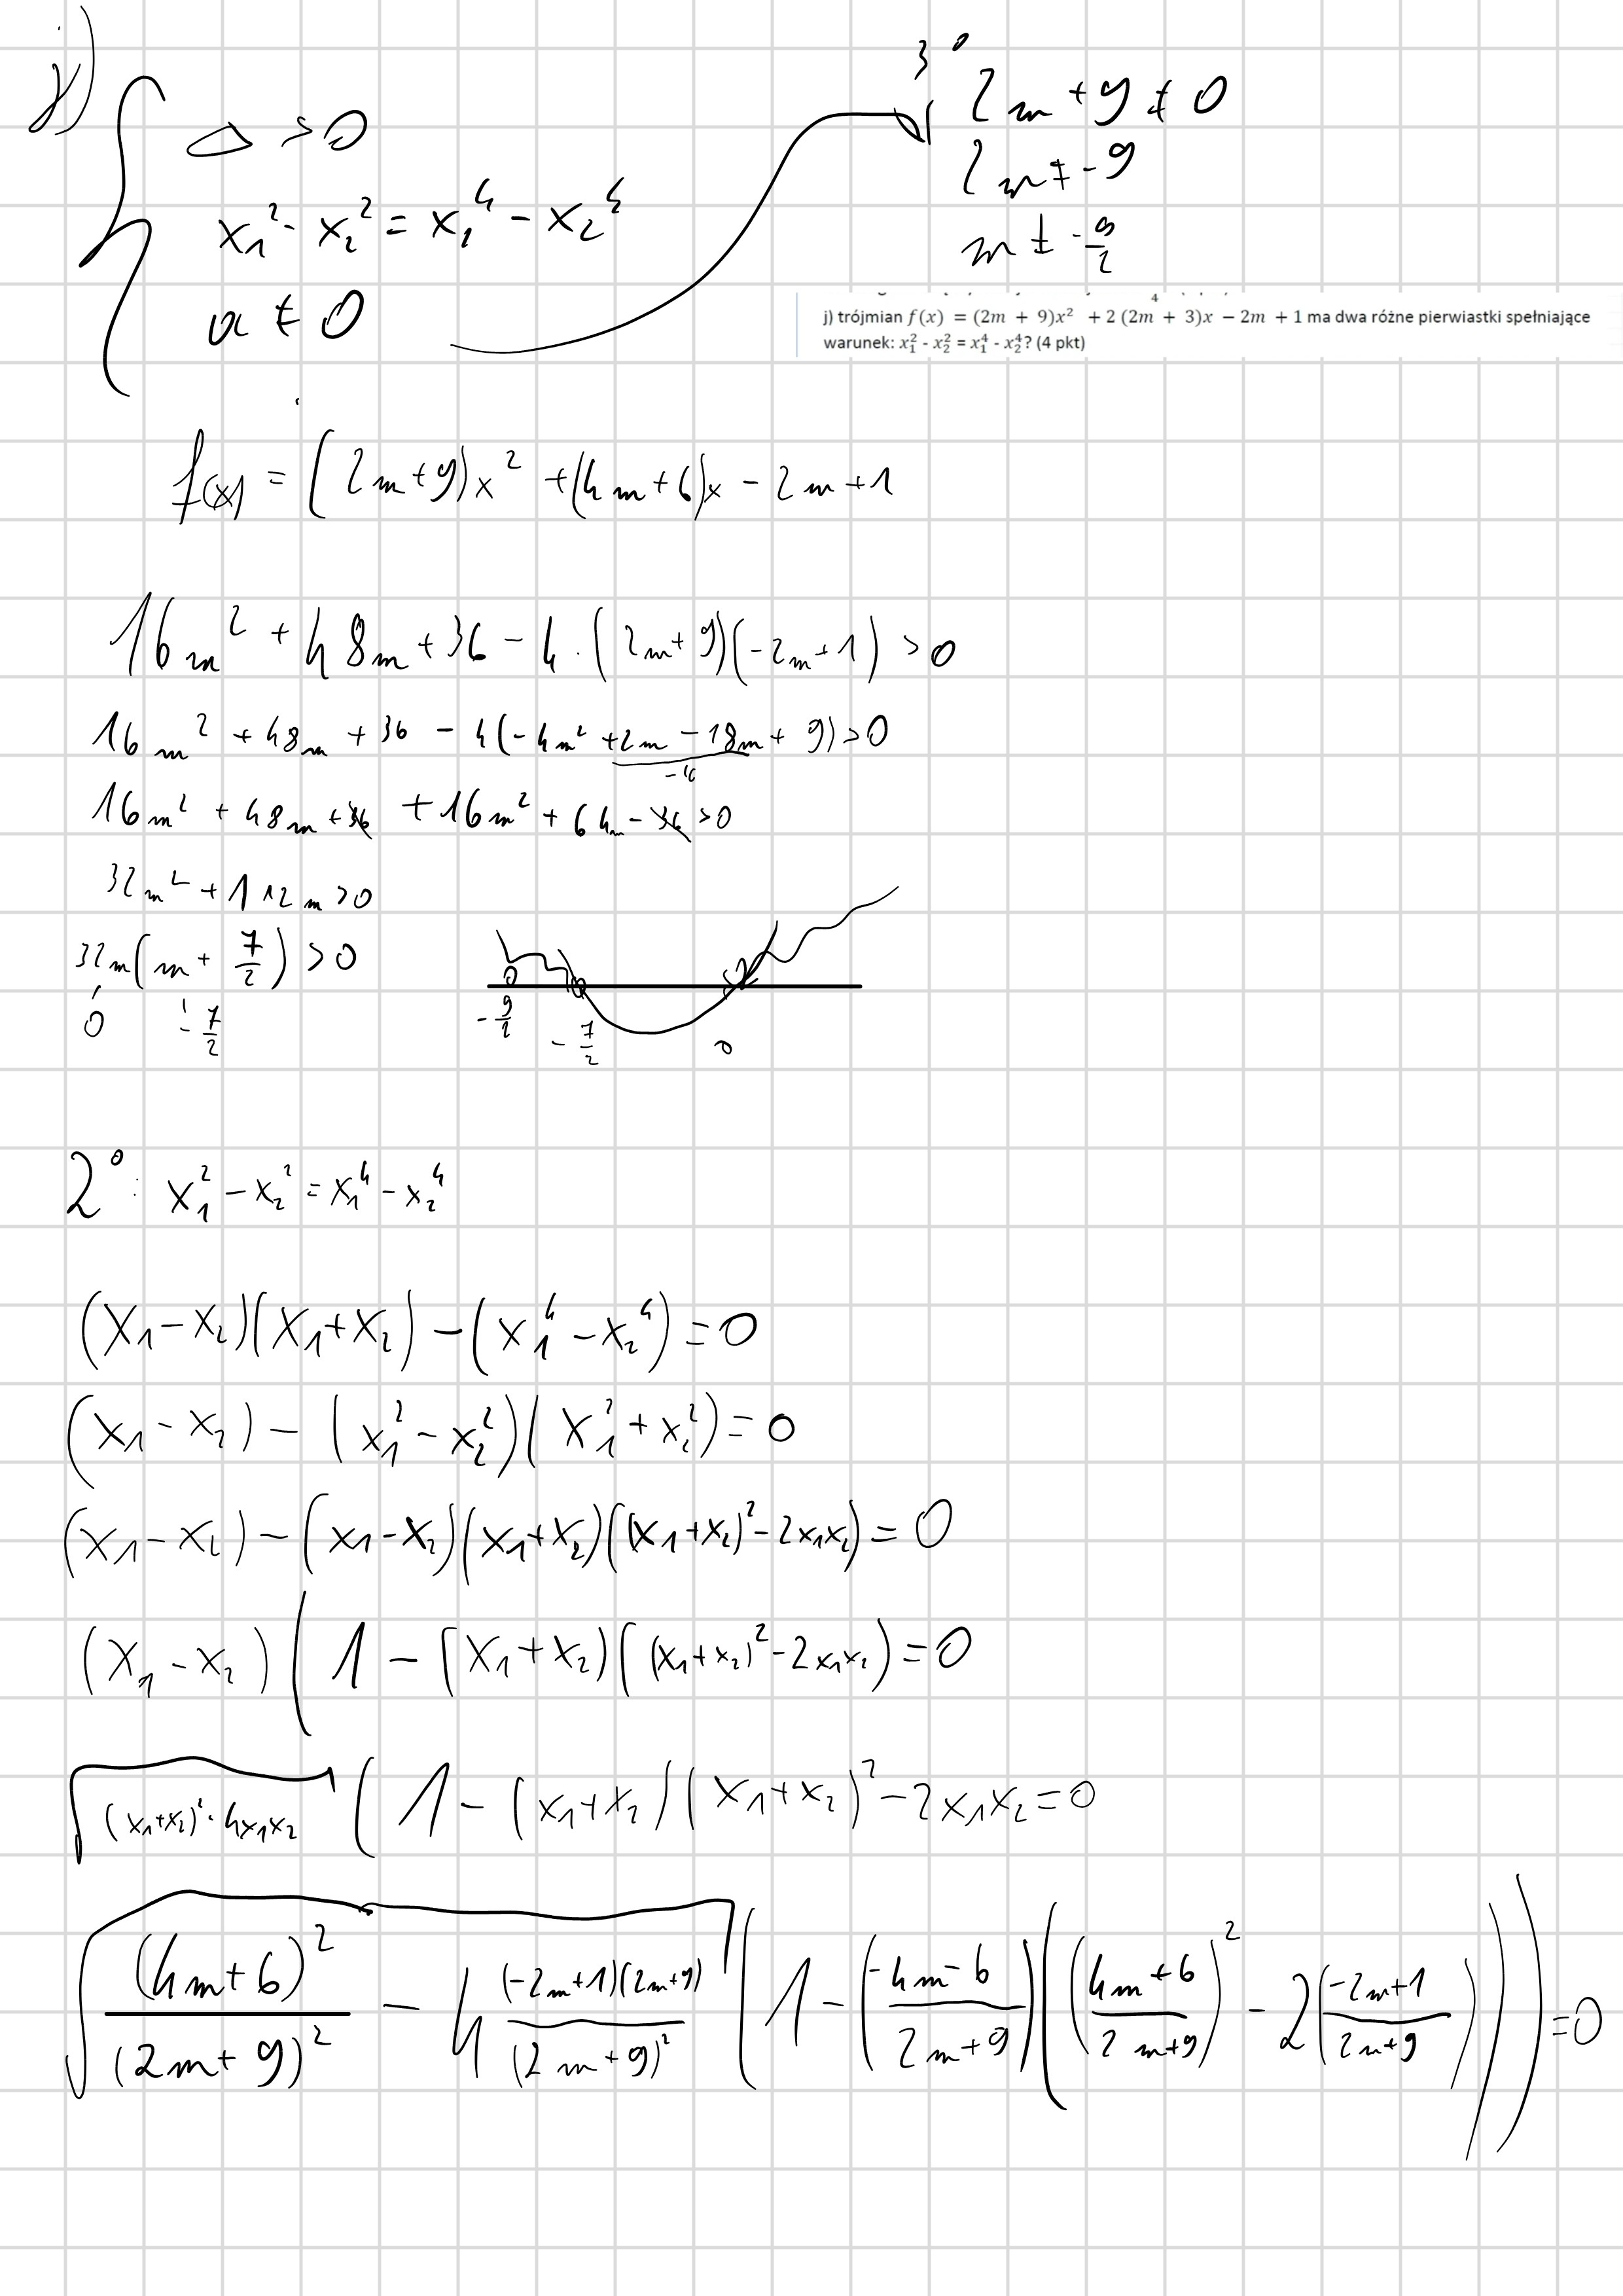 j)
Δ > 0
x₁² - x₂² = x₁⁴ - x₂⁴
a ≠ 0
3°
2m + 9 ≠ 0
2m ≠ -9
m ≠ -9/2
j) trójmian f(x) = (2m + 9)x² + 2 (2m + 3)x − 2m + 1 ma dwa różne pierwiastki spełniające
warunek: x₁² - x₂² = x₁⁴ - x₂⁴? (4 pkt)
f(x) = (2m+9)x² + (4m+6)x - 2m + 1
16m² + 48m + 36 - 4·(2m+9)(-2m+1) > 0
16m² + 48m + 36 - 4(-4m² + 2m - 18m + 9) > 0
-16
16m² + 48m + 36 + 16m² + 64m - 36 > 0
32m² + 112m > 0
32m(m + 7/2) > 0
0 -7/2
-9/2 -7/2 0
2°: x₁² - x₂² = x₁⁴ - x₂⁴
(x₁ - x₂)(x₁ + x₂) - (x₁⁴ - x₂⁴) = 0
(x₁ - x₂) - (x₁² - x₂²)(x₁² + x₂²) = 0
(x₁ - x₂) - (x₁ - x₂)(x₁ + x₂)((x₁ + x₂)² - 2x₁x₂) = 0
(x₁ - x₂)(1 - (x₁ + x₂)((x₁ + x₂)² - 2x₁x₂) = 0
√((x₁+x₂)² - 4x₁x₂) (1 - (x₁+x₂)(x₁+x₂)² - 2x₁x₂ = 0
√((4m+6)²/(2m+9)² - 4 (-2m+1)(2m+9)/(2m+9)²) (1 - (-4m-6/2m+9)((4m+6/2m+9)² - 2(-2m+1/2m+9))) = 0